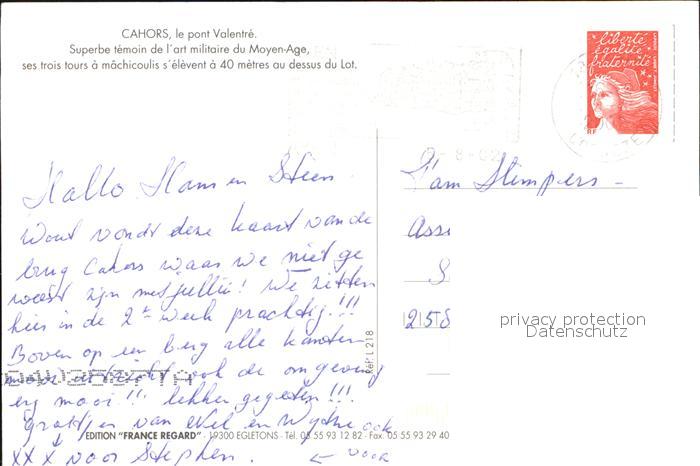 CAHORS, le pont Valentré.
Superbe témoin de l'art militaire du Moyen-Age,
ses trois tours à mâchicoulis s'élèvent à 40 mètres au dessus du Lot.
liberté
égalité
fraternité
RF
Hallo Ham en Steen
Wout vondt deze kaart van de
brug Cahors waar we niet ge
weest zijn met jullie! We zitten
hier in de 2e week prachtig!!!
Boven op een berg alle kanten
ook de omgeving
erg mooi!! lekker gegeten!!!
groetjes van Wel en Wytse ook
XXX voor Stephen. ← voor
Fam Slimpers -
Ass
S
2518
privacy protection
Datenschutz
Réf L 218
EDITION "FRANCE REGARD" · 19300 EGLETONS · Tél. 05 55 93 12 82 · Fax. 05 55 93 29 40